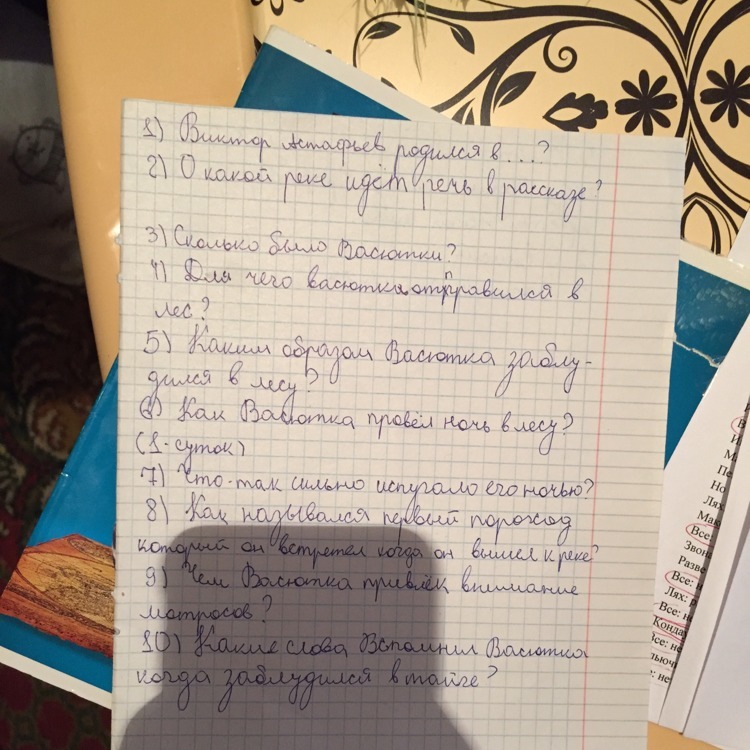 1) Виктор Астафьев родился в....?
2) О какой реке идёт речь в рассказе?
3) Сколько было Васютки?
4) Для чего васютка отправился в
лес?
5) Каким образом Васютка заблу-
дился в лесу?
6) Как Васютка провёл ночь в лесу?
(1-суток)
7) Что-так сильно испугало его ночью?
8) Как назывался первый пороход
который он встретел когда он вышел к реке?
9) Чем Васютка привлёк внимание
матросов?
10) Какие слова Вспомнил Васютка
когда заблудился в тайге?
В
И
М
Пе
Но
Лях
Мак
Все:
Звона
Разве
Все: н
Лях: р
Все: не
Конда
Все: не
: нет